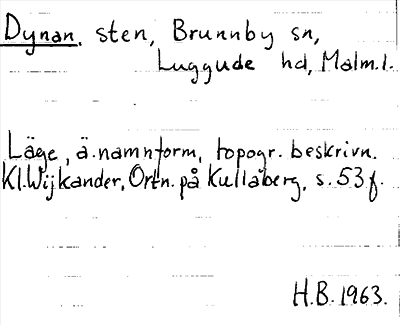 Dynan, sten, Brunnby sn,
Luggude hd, Malm.l.
Läge, ä.namnform, topogr. beskrivn.
Kl.Wijkander, Ortn. på Kullaberg, s. 53 f.
H.B. 1963.